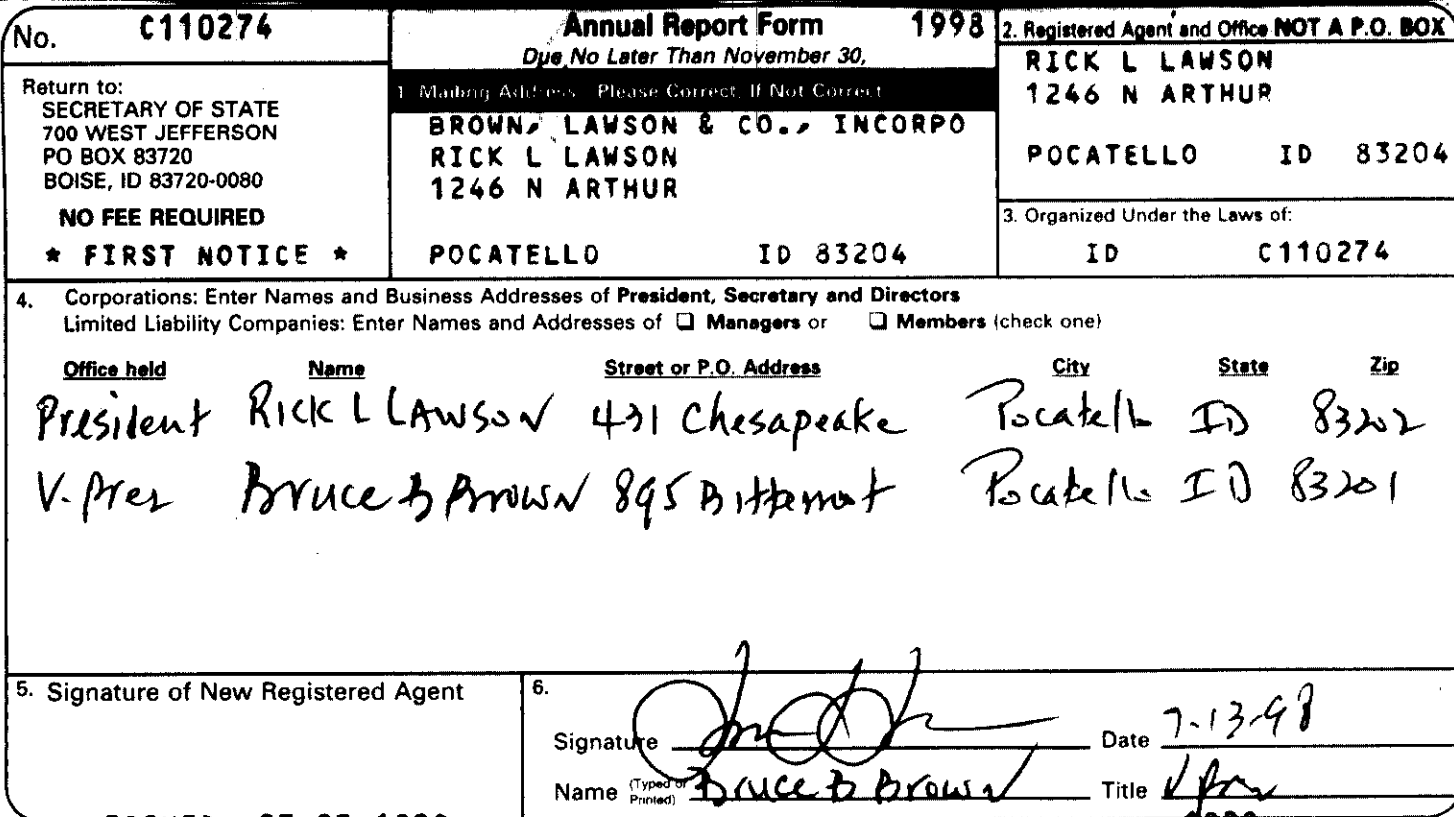 No. C110274
Return to:
SECRETARY OF STATE
700 WEST JEFFERSON
PO BOX 83720
BOISE, ID 83720-0080
NO FEE REQUIRED
* FIRST NOTICE *
Annual Report Form 1998
Due No Later Than November 30,
1. Mailing Address Please Correct, If Not Correct
BROWN, LAWSON & CO., INCORPO
RICK L LAWSON
1246 N ARTHUR
POCATELLO ID 83204
2. Registered Agent and Office NOT A P.O. BOX
RICK L LAWSON
1246 N ARTHUR
POCATELLO ID 83204
3. Organized Under the Laws of:
ID C110274
4. Corporations: Enter Names and Business Addresses of President, Secretary and Directors
Limited Liability Companies: Enter Names and Addresses of ❑ Managers or ❑ Members (check one)
Office held Name Street or P.O. Address City State Zip
President RICK L LAWSON 431 Chesapeake Pocatello ID 83202
V. Pres Bruce B Brown 895 Pocatello ID 83201
5. Signature of New Registered Agent
6.
Signature Date 7-13-98
Name (Typed or Printed) Bruce B Brown Title V Pres